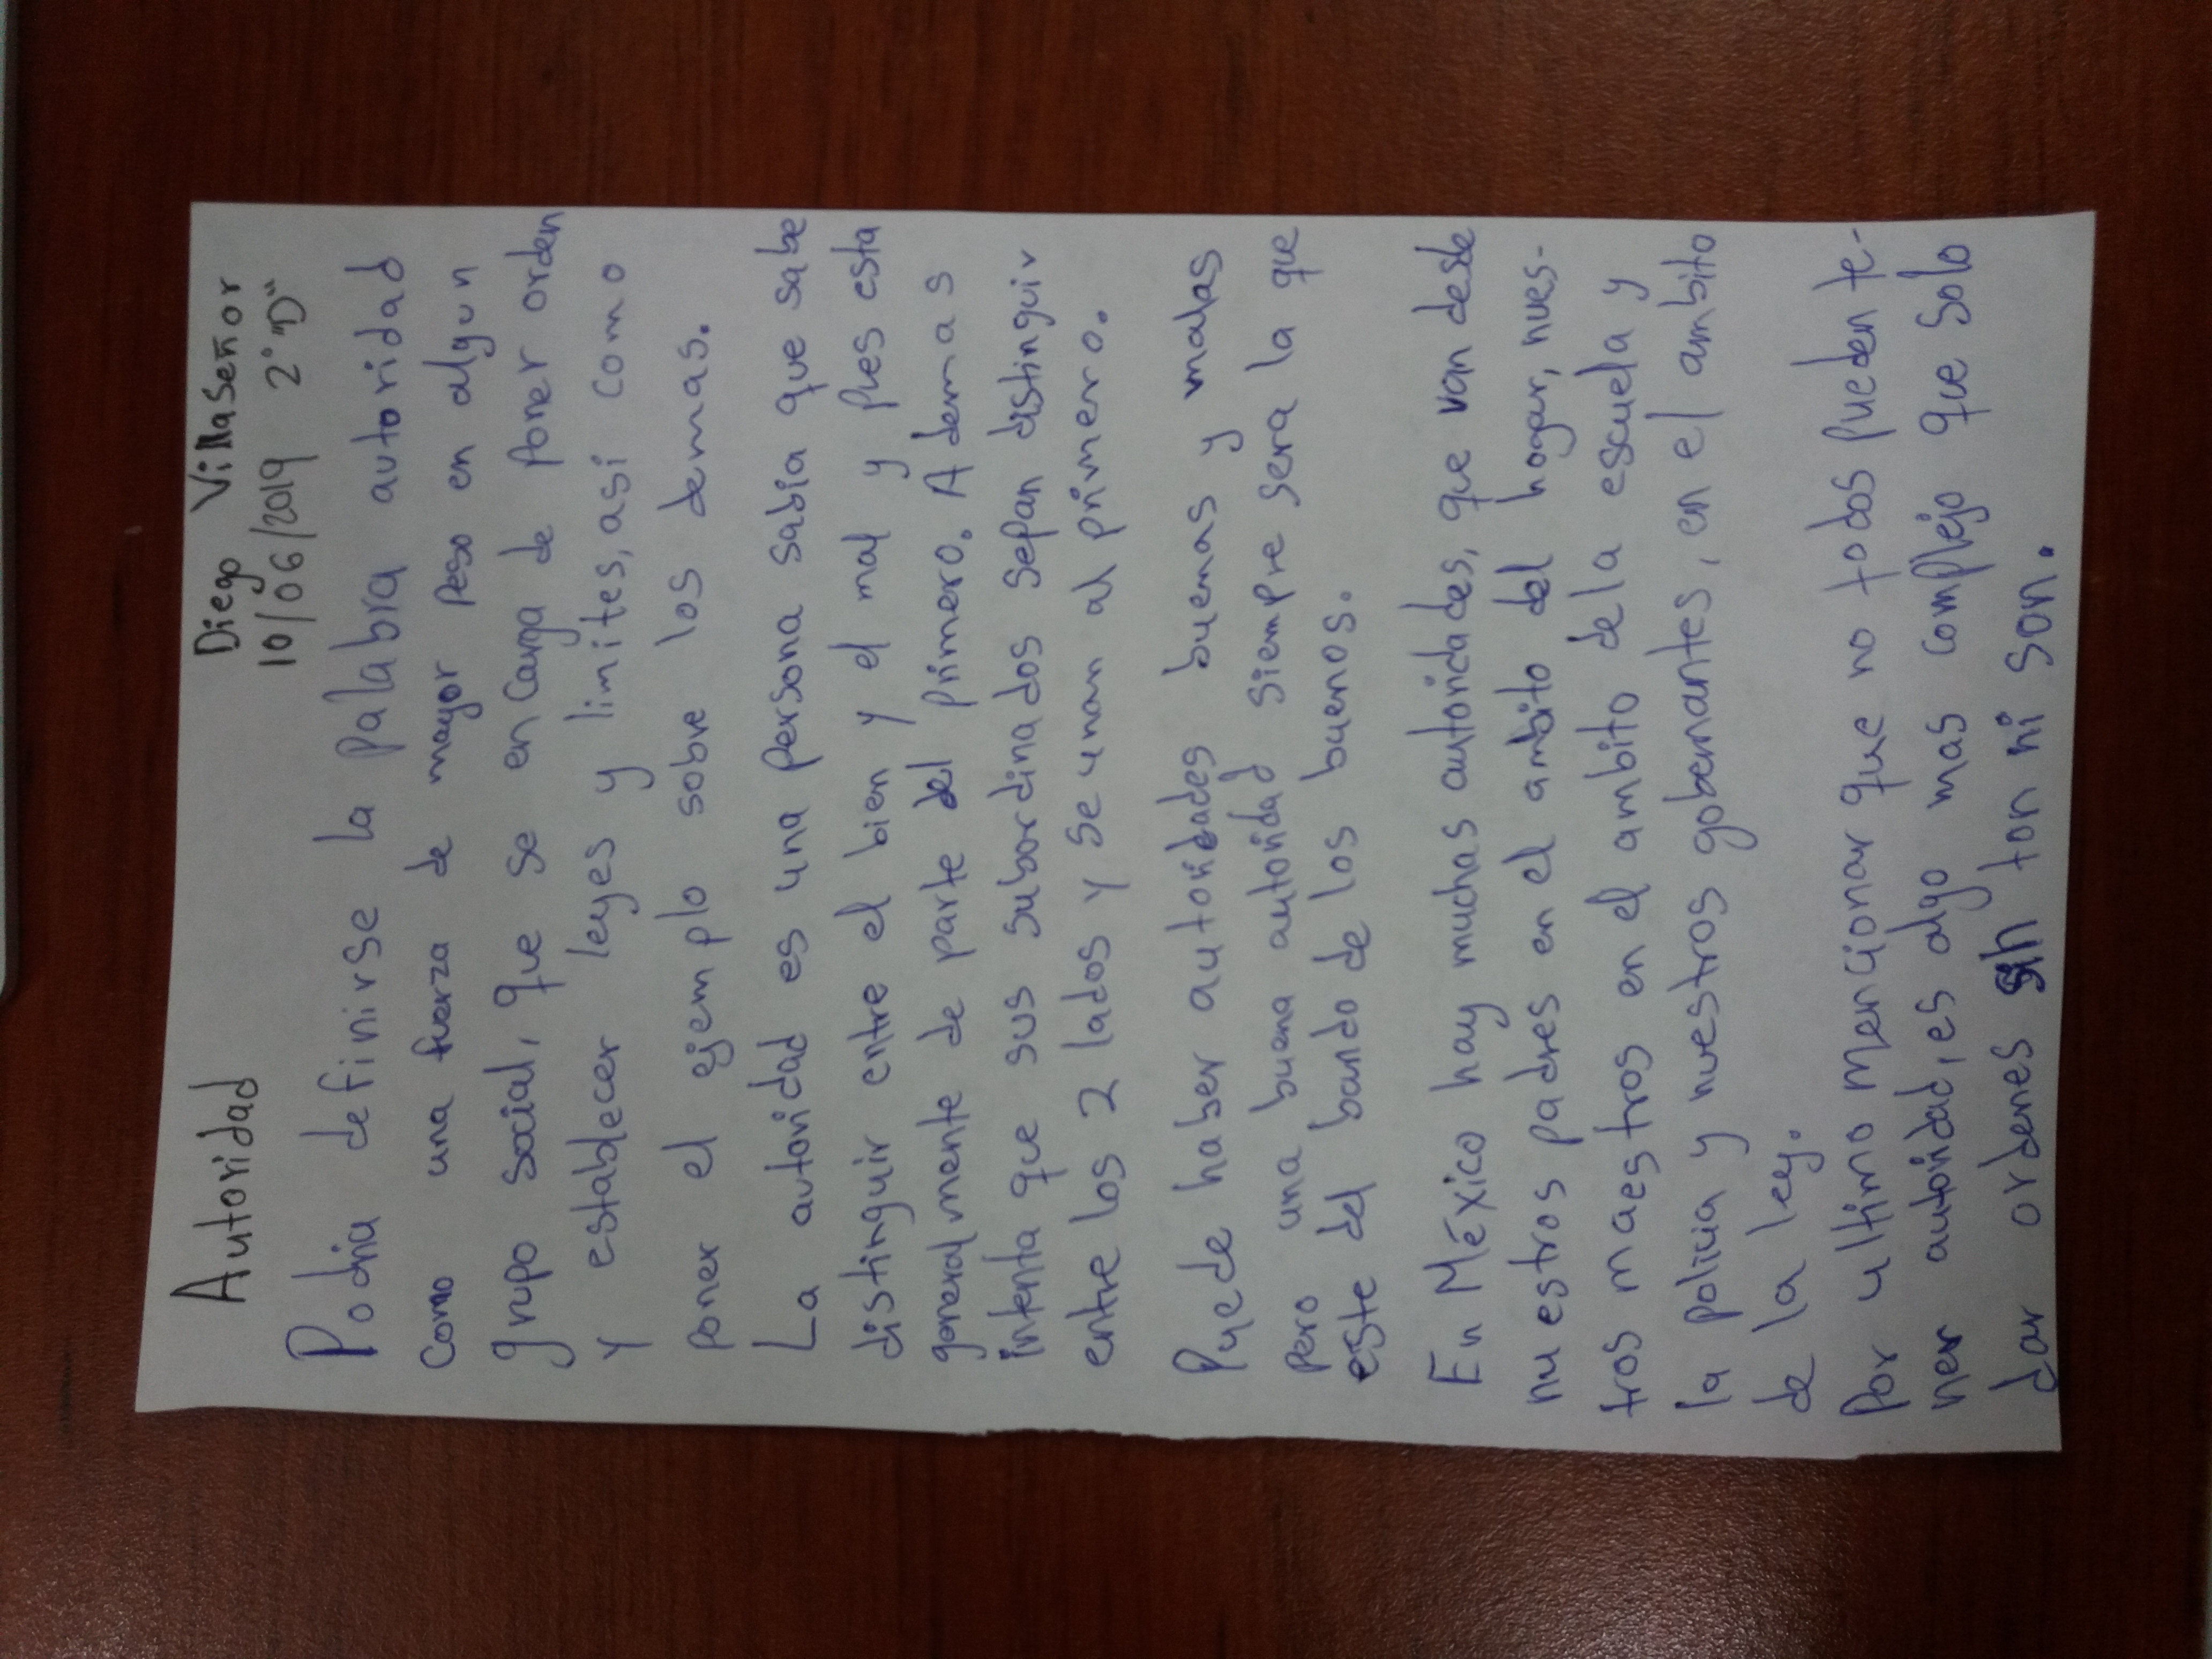 Autoridad
Diego Villaseñor
10/06/2019 2° "D"
Podria definirse la palabra autoridad
como una fuerza de mayor peso en algun
grupo social, que se encarga de poner orden
y establecer leyes y limites, asi como
poner el ejemplo sobre los demas.
La autoridad es una persona sabia que sabe
distinguir entre el bien y el mal y pues esta
generalmente de parte del primero. Ademas
intenta que sus subordinados sepan distinguir
entre los 2 lados y se unan al primero.
Puede haber autoridades buenas y malas
pero una buena autoridad siempre sera la que
este del bando de los buenos.
En México hay muchas autoridades, que van desde
nuestros padres en el ambito del hogar, nues-
tros maestros en el ambito de la escuela y
la policia y nuestros gobernantes, en el ambito
de la ley.
Por ultimo mencionar que no todos pueden te-
ner autoridad, es algo mas complejo que solo
dar ordenes sin ton ni son.